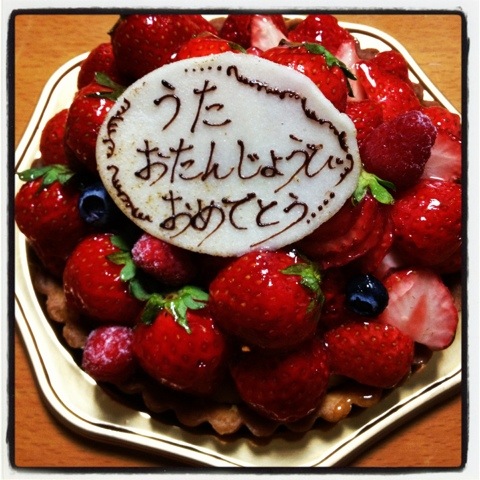 うた
おたんじょうび
おめでとう